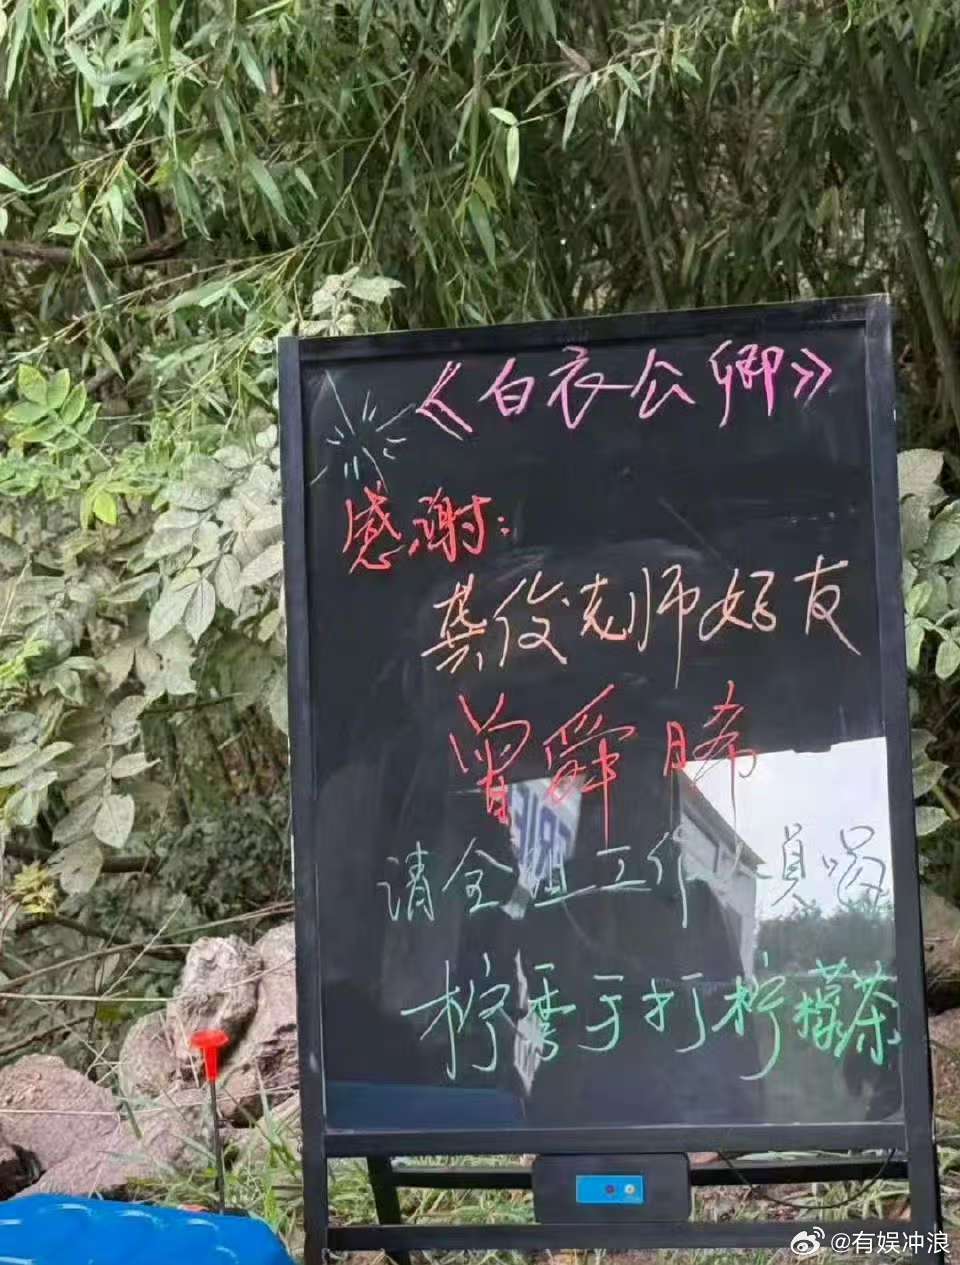 《白衣公卿》
感谢:
龚俊老师好友
曾舜晞
请全组工作人员喝
柠季手打柠檬茶
@有娱冲浪